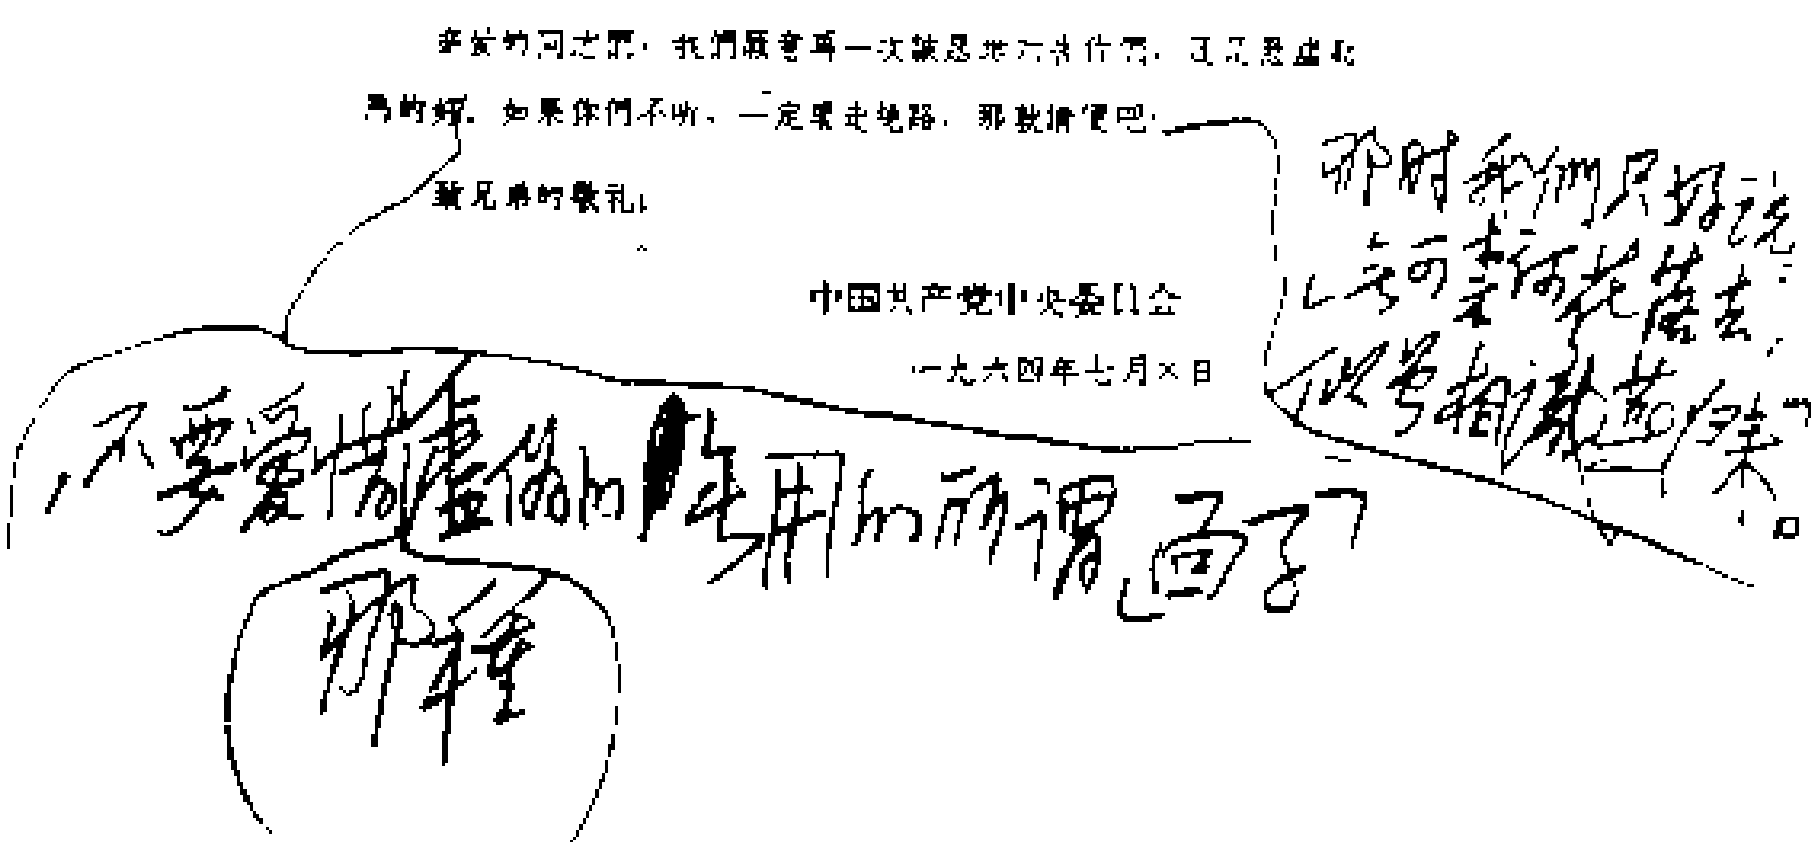 亲爱的同志們，我們願意再一次誠恳地劝告你們，还是悬崖勒
馬的好。如果你們不听，一定要走絕路，那就請便吧！
致兄弟的敬礼！
中国共产党中央委員会
一九六四年七月×日
那时我們只好说：
“无可奈何花落去，
似曾相識燕归来”。
，不要爱惜虚伪的無用的所谓“面子”
那種